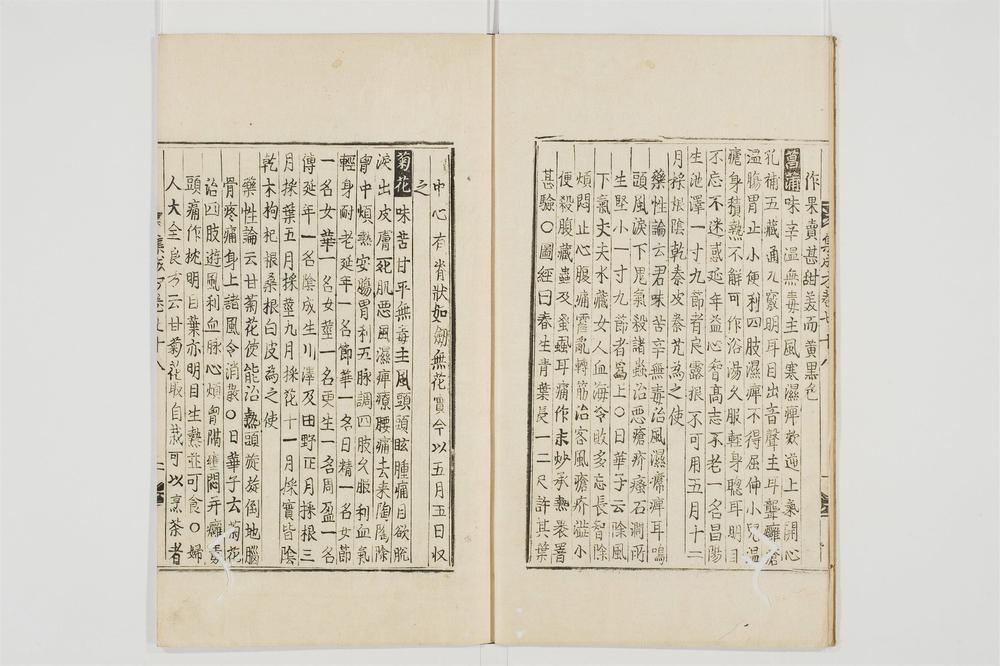 作果賣甚甜美而黃黑色
菖蒲味辛溫無毒主風寒濕痺欬逆上氣開心
孔補五藏通九竅明耳目出音聲主耳聾癰瘡
溫腸胃止小便利四肢濕痺不得屈伸小兒溫
瘧身積熱不解可作浴湯久服輕身聦耳明目
不忘不迷惑延年益心智高志不老一名昌陽
生池澤一寸九節者良露根不可用五月十二
月採根陰乾秦皮秦艽為之使
藥性論云君味苦辛無毒治風濕𤸷痺耳鳴
頭風淚下鬼氣殺諸蟲治惡瘡疥瘙石澗所
生堅小一寸九節者爲上〇日華子云除風
下氣丈夫水藏女人血海冷敗多忘長智除
煩悶止心腹痛霍亂轉筋治客風瘡疥澁小
便殺腹藏蟲及蚤蝨耳痛作末炒承熱裹罯
甚驗〇圖經曰春生青葉長一二尺許其葉
中心有脊狀如劒無花實今以五月五日収
之
菊花味苦甘平無毒主風頭頭眩腫痛目欲脫
淚出皮膚死肌惡風濕痺療腰痛去来陶陶除
胷中煩熱安腸胃利五脉調四肢久服利血氣
輕身耐老延年一名節華一名日精一名女節
一名女華一名女莖一名更生一名周盈一名
傅延年一名陰成生川澤及田野正月採根三
月採葉五月採莖九月採花十一月採實皆陰
乾朮枸杞根桑根白皮為之使
藥性論云甘菊花使能治熱頭旋旋倒地腦
骨疼痛身上諸風令消散〇日華子云菊花
治四肢遊風利血脉心煩胷膈壅悶并癰毒
頭痛作枕明目葉亦明目生熟並可食〇婦
人大全良方云甘菊花取自栽可以烹茶者
集成方卷七十八